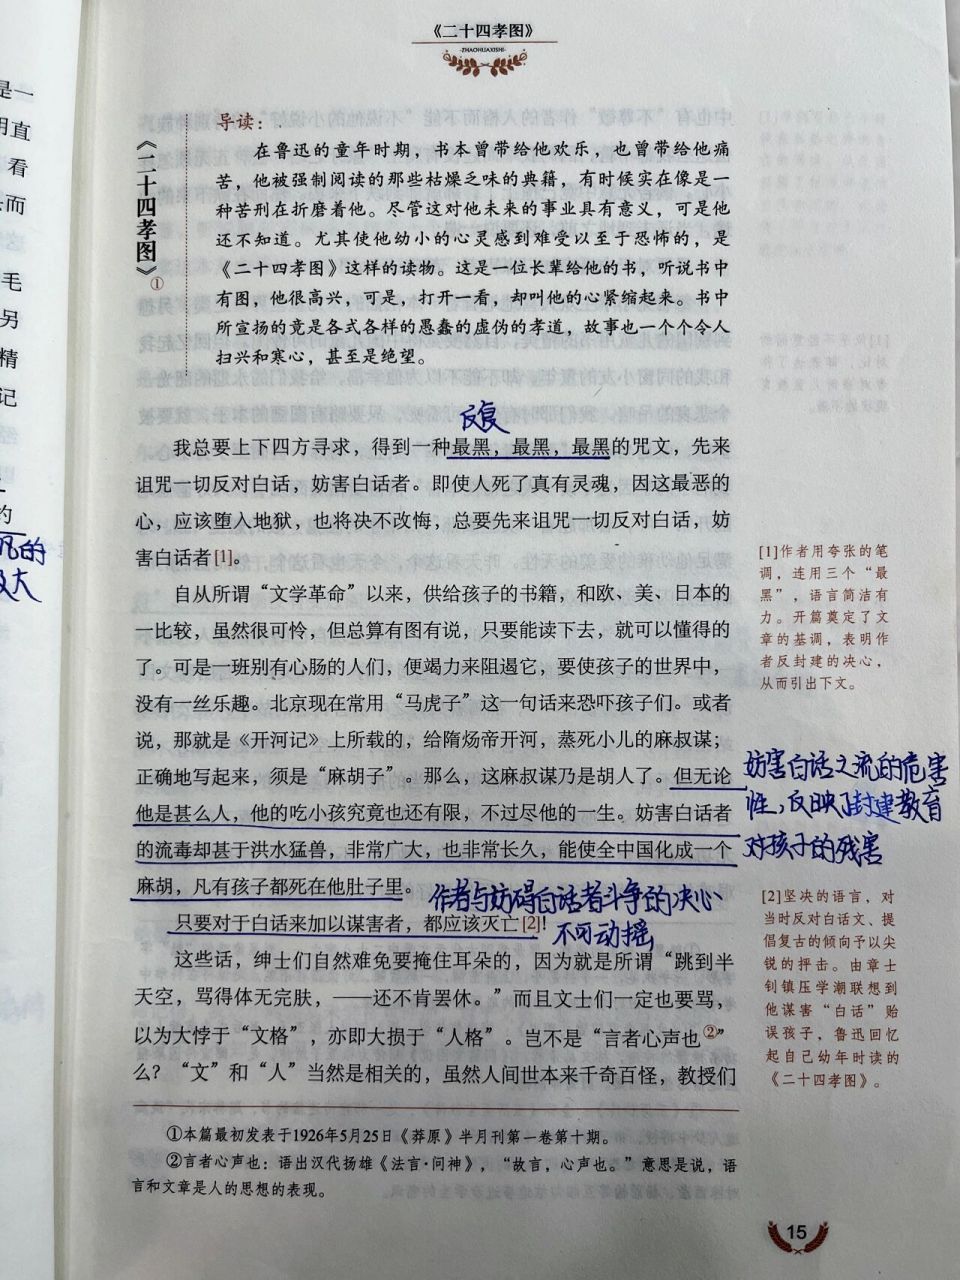 《二十四孝图》
·ZHAOHUAXISHI·
《二十四孝图》①
导读：
在鲁迅的童年时期，书本曾带给他欢乐，也曾带给他痛
苦，他被强制阅读的那些枯燥乏味的典籍，有时候实在像是一
种苦刑在折磨着他。尽管这对他未来的事业具有意义，可是他
还不知道。尤其使他幼小的心灵感到难受以至于恐怖的，是
《二十四孝图》这样的读物。这是一位长辈给他的书，听说书中
有图，他很高兴，可是，打开一看，却叫他的心紧缩起来。书中
所宣扬的竟是各式各样的愚蠢的虚伪的孝道，故事也一个个令人
扫兴和寒心，甚至是绝望。
反复
我总要上下四方寻求，得到一种最黑，最黑，最黑的咒文，先来
诅咒一切反对白话，妨害白话者。即使人死了真有灵魂，因这最恶的
心，应该堕入地狱，也将决不改悔，总要先来诅咒一切反对白话，妨
害白话者[1]。
自从所谓“文学革命”以来，供给孩子的书籍，和欧、美、日本的
一比较，虽然很可怜，但总算有图有说，只要能读下去，就可以懂得的
了。可是一班别有心肠的人们，便竭力来阻遏它，要使孩子的世界中，
没有一丝乐趣。北京现在常用“马虎子”这一句话来恐吓孩子们。或者
说，那就是《开河记》上所载的，给隋炀帝开河，蒸死小儿的麻叔谋；
正确地写起来，须是“麻胡子”。那么，这麻叔谋乃是胡人了。但无论
他是甚么人，他的吃小孩究竟也还有限，不过尽他的一生。妨害白话者
的流毒却甚于洪水猛兽，非常广大，也非常长久，能使全中国化成一个
麻胡，凡有孩子都死在他肚子里。
作者与妨碍白话者斗争的决心
不可动摇
只要对于白话来加以谋害者，都应该灭亡[2]！
这些话，绅士们自然难免要掩住耳朵的，因为就是所谓“跳到半
天空，骂得体无完肤，——还不肯罢休。”而且文士们一定也要骂，
以为大悖于“文格”，亦即大损于“人格”。岂不是“言者心声也②”
么？“文”和“人”当然是相关的，虽然人间世本来千奇百怪，教授们
[1]作者用夸张的笔
调，连用三个“最
黑”，语言简洁有
力。开篇奠定了文
章的基调，表明作
者反封建的决心，
从而引出下文。
妨害白话文流的危害
性，反映了封建教育
对孩子的残害
[2]坚决的语言，对
当时反对白话文、提
倡复古的倾向予以尖
锐的抨击。由章士
钊镇压学潮联想到
他谋害“白话”贻
误孩子，鲁迅回忆
起自己幼年时读的
《二十四孝图》。
①本篇最初发表于1926年5月25日《莽原》半月刊第一卷第十期。
②言者心声也：语出汉代扬雄《法言·问神》，“故言，心声也。”意思是说，语
言和文章是人的思想的表现。
15
是一
明直
看
而
毛
另
精
记
的
凡的
大